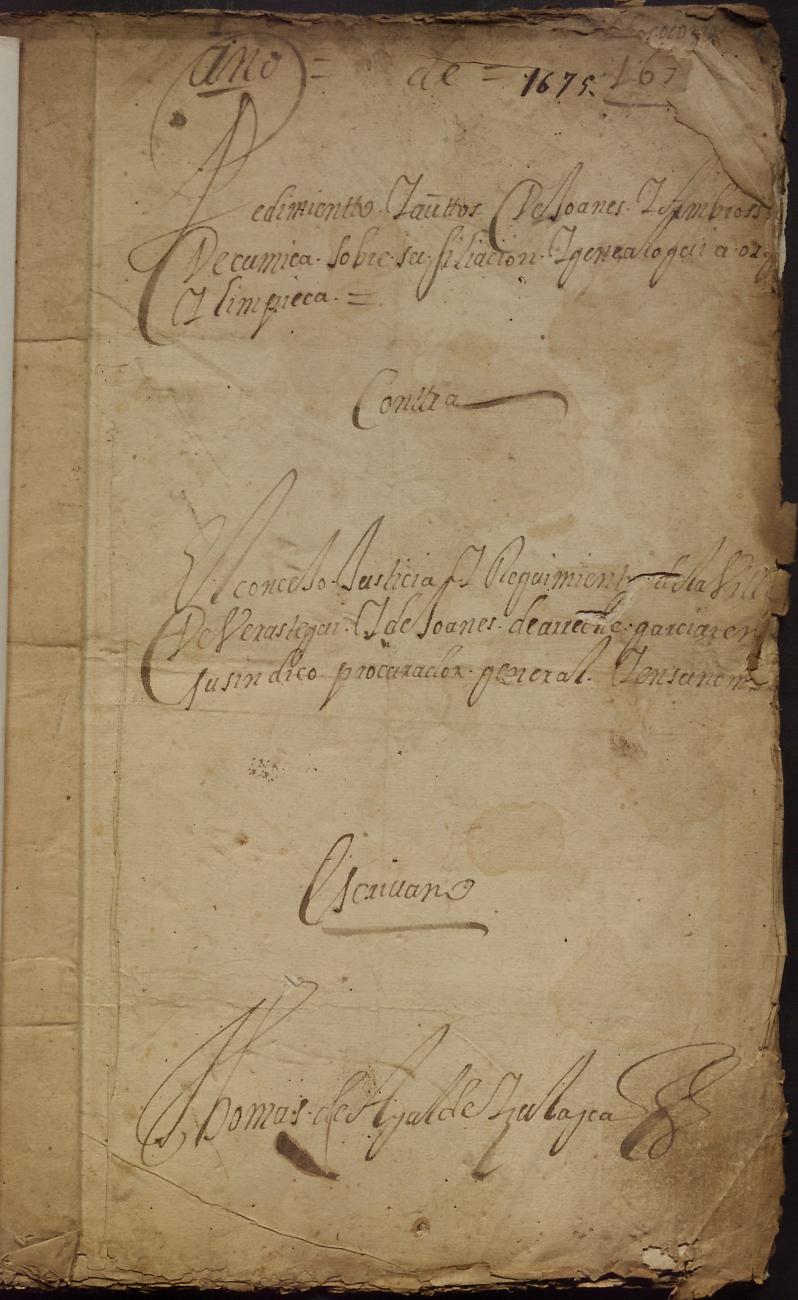 año = de = 1675. 167
Pedimientto. Yauttos. De Joanes. Y Ambross
De cumica. sobre su filiacion. Y genealoguia. o
Y limpieca. =
Conttra
El concejo. Justicia Y Reguimiento de la Vill
De Verastegui. Y de Joanes. de arreche. garciaren
su sindico procurador. general. Y en su nom
Escriuano
Thomas. de Ygalde